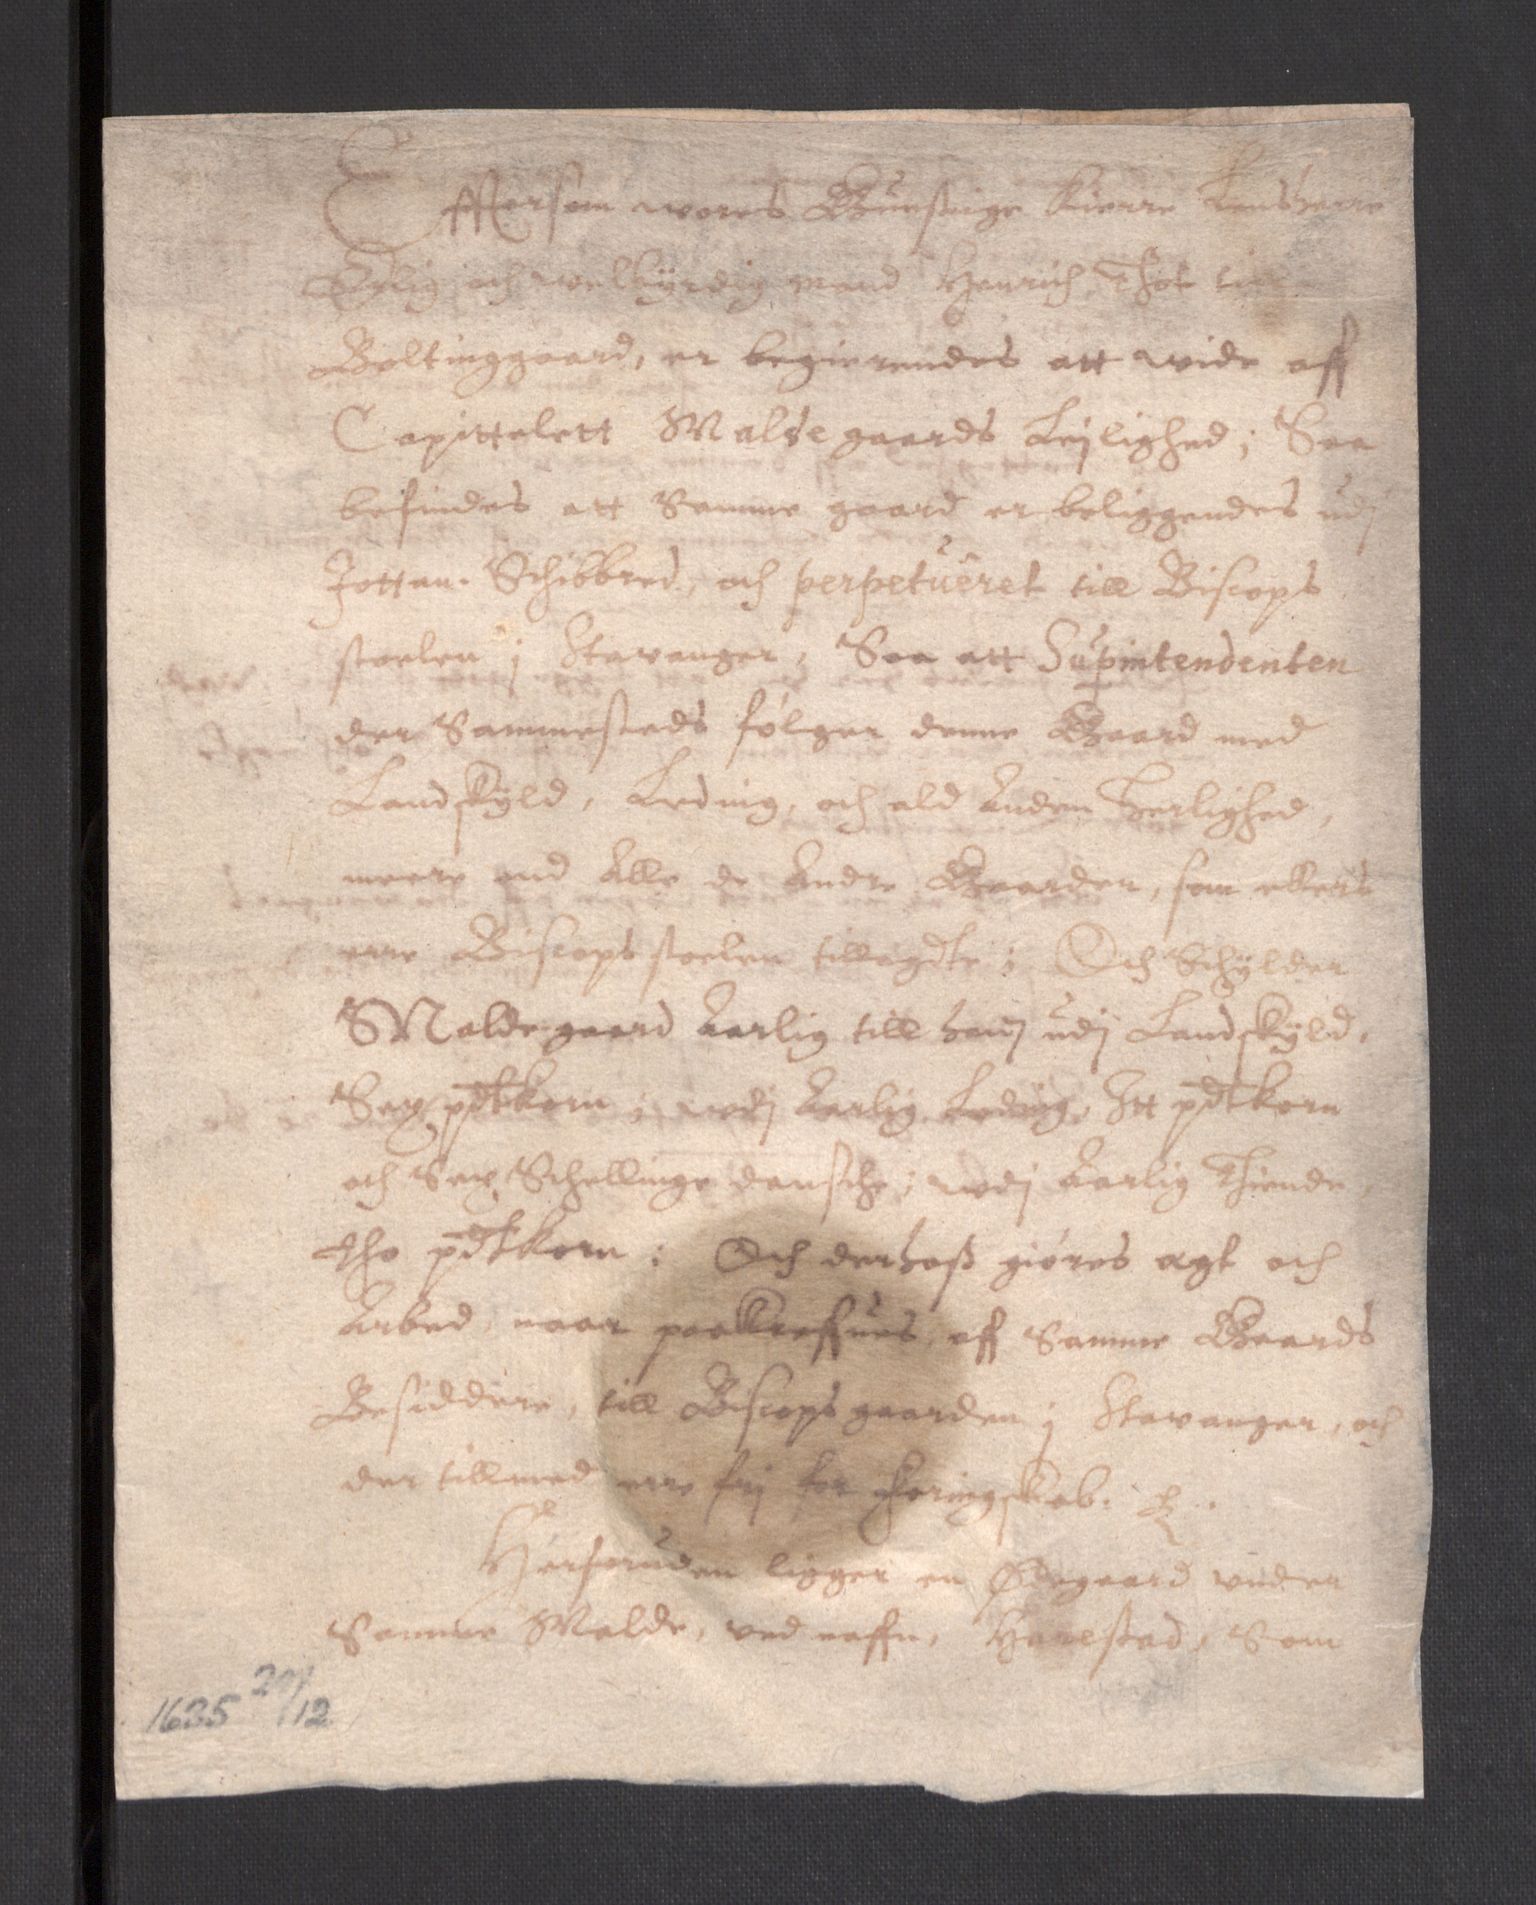 Effttersom wores Gunstige kierre Lensherre
Erlig och welbyrdig mand Henrich Thot till
Boltinggaard, er begierendes att wide aff
Capittelett Malde gaards Leilighed; Saa
befindes att Samme gaard er beliggendes udj
Jottan. Schibbred, och perpetueret till Biscops
stoelen j Stavanger, Saa att Supintendenten
der Sammesteds følger denne Gaard med
Landskyld, Leding, och ald anden herlighed,
meere end Alle de Andre Gaarder, som ellers
erre Biscops stoelen tillagdte; Och Schylder
Malde gaard Aarlig till hanj udj Landskyld,
Sex pdtkorn; wdj Aarlig Leding, Itt pdtkorn
och Sex Schellinge dansche; wdj Aarlig Thiende,
tho pdtkorn: Och derhoß giøres agt och
Arbed, naar paakreffues, aff Samme Gaards
Besiddere, till Biscops gaarden j Stavanger, och
der tillmed erre frj for Foringskab. &.
Herforuden ligger en Ødegaard under
Samme Malde, ved naffn, Harestad, Som
1635 /12